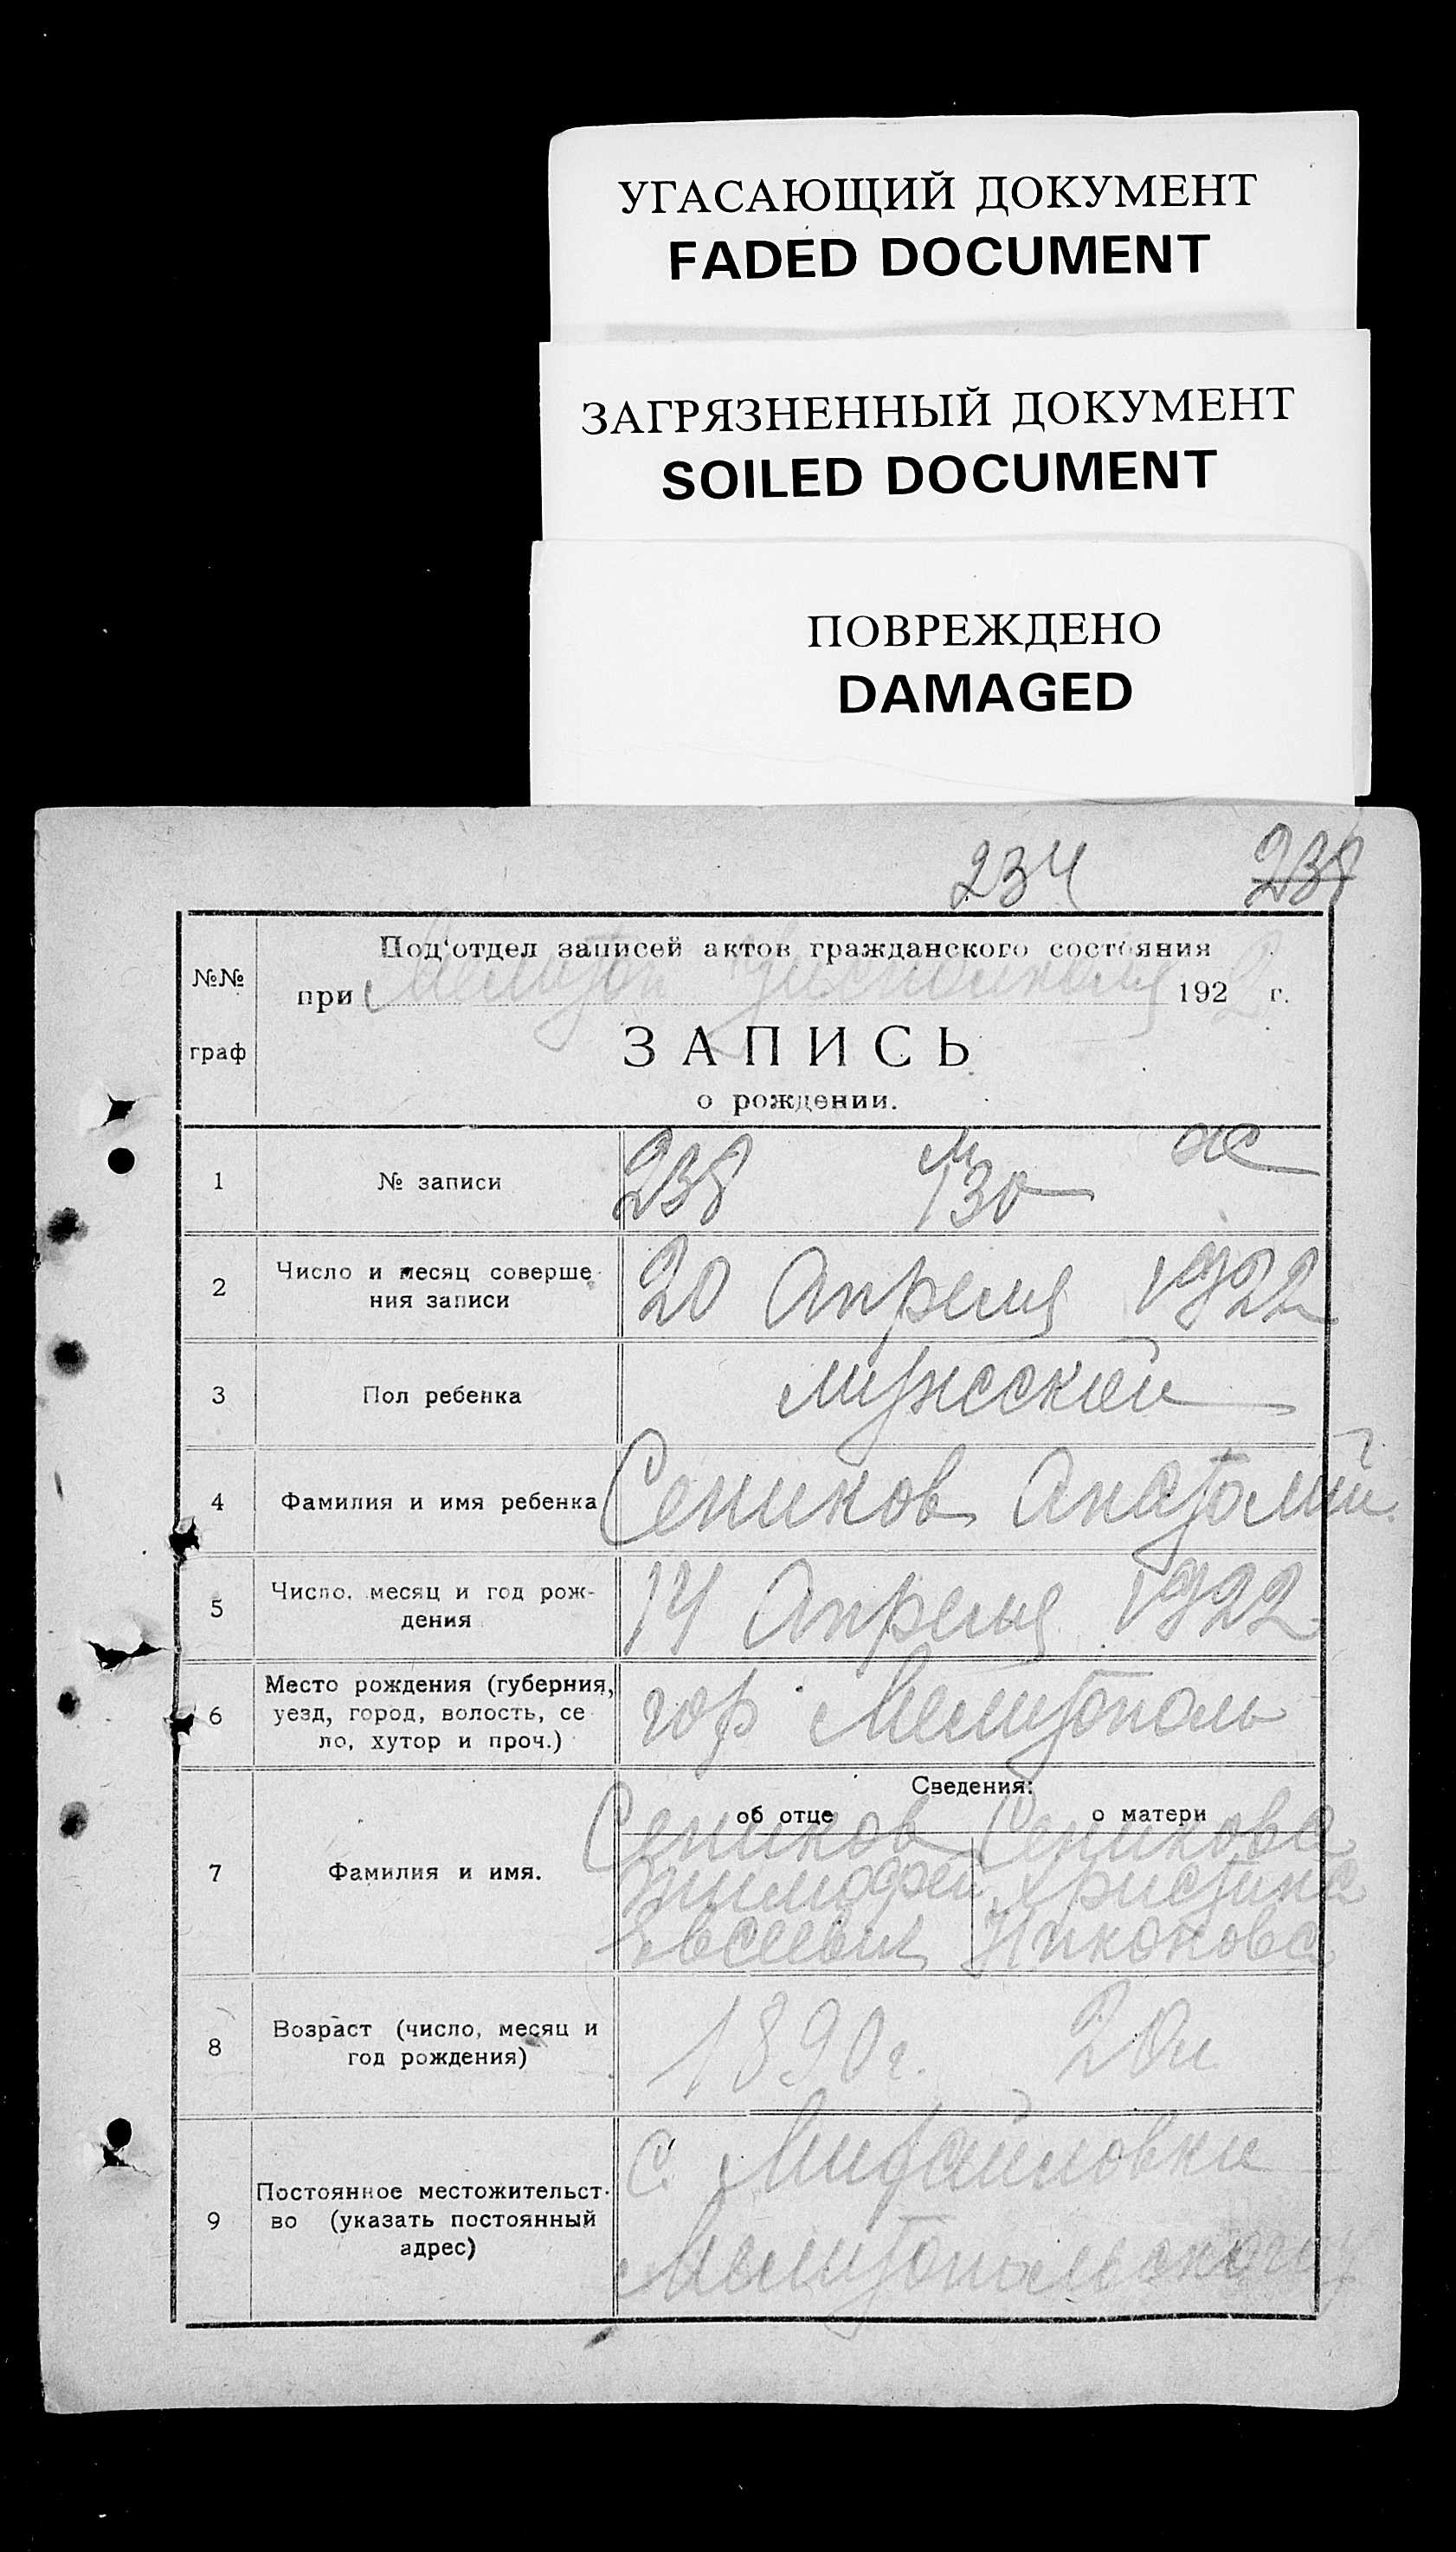 УГАСАЮЩИЙ ДОКУМЕНТ
FADED DOCUMENT
ЗАГРЯЗНЕННЫЙ ДОКУМЕНТ
SOILED DOCUMENT
ПОВРЕЖДЕНО
DAMAGED
234 238
№№ граф
Под'отдел записей актов гражданского состояния
при 1922 г.
ЗАПИСЬ
о рождении.
1 № записи 238 м 130 ж
2 Число и месяц соверше-
ния записи 20 Апреля 1922
3 Пол ребенка мужской
4 Фамилия и имя ребенка Сеников Анатолий
5 Число, месяц и год рож-
дения 14 Апреля 1922
6 Место рождения (губерния,
уезд, город, волость, се-
ло, хутор и проч.) гор Мелитополь
Сведения:
об отце о матери
7 Фамилия и имя. Сеников Сеникова
Тимофей Христина
Евсеевич Никонова
8 Возраст (число, месяц и
год рождения) 1890 г. 20 л
9 Постоянное местожительст-
во (указать постоянный
адрес) с. Михайловки
Мелитопольского у